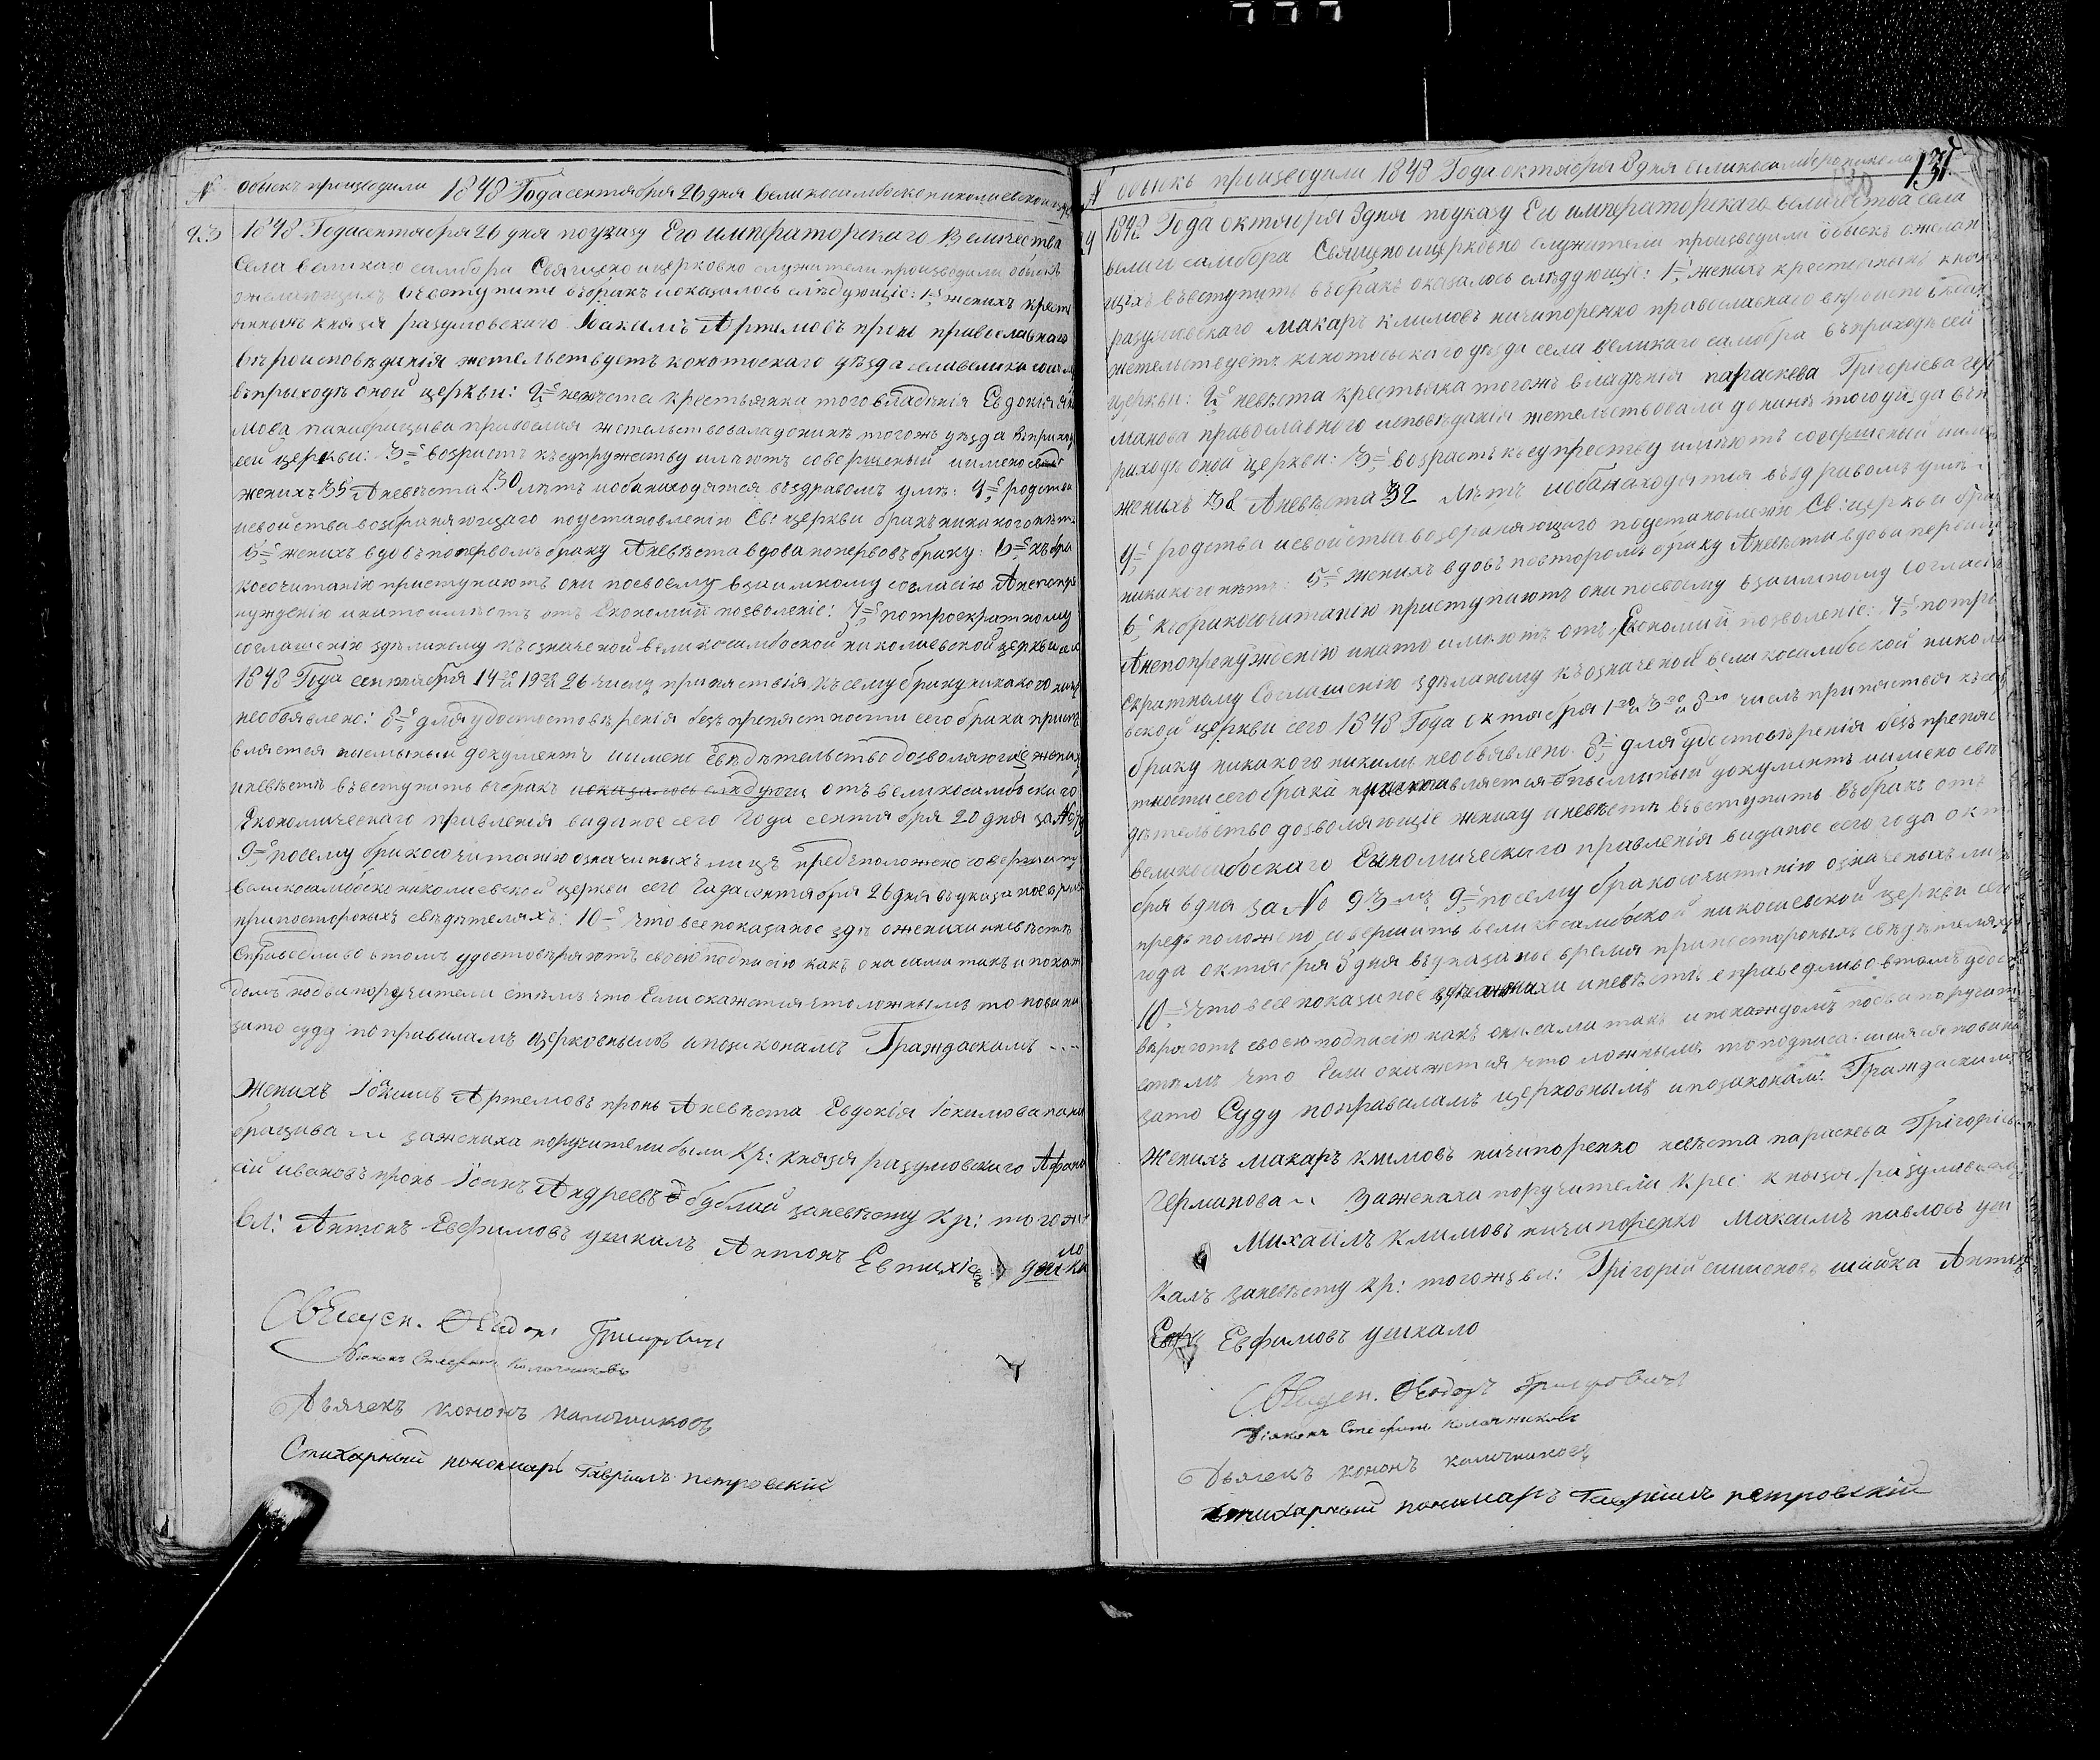 № обыскъ производили 1848 Года сентября 26 дня великосамбоске николаевской
23 1848 Года сентября 26 дня по указу Его императорскаго Величества
Села великаго самбора Священо и церковно служители производили обыскъ
о желающихъ въвступити въ бракъ и оказалось слѣдующіе: 1е женихъ крест
янинъ князя разумовскаго Іоакимъ Артемовъ пронь православнаго
вѣроисповѣданія жетельствуетъ конотоскаго уѣзда села велико
въ приходѣ сной церкви: 2е невѣста крестьянка того владѣнія Евдокія
мова православная жетельствовала до нинѣ тогожъ уѣзда въ приход
сей церкви: 3е возрастъ къ супружеству имѣютъ соверщеный именно
женихъ 35 А невѣста 30 лѣтъ и оба находятся въ здравомъ умѣ: 4е родства
и свойства возбраняющаго по установленію Св: церкви бракъ никакого нѣтъ
5е женихъ вдовъ по первомъ браку А невѣста вдова по первовъ браку: 6е къ бра
косочитанію приступаютъ они по своему взаимному согласію А не по пре
нужденію и на то имѣютъ отъ Економіи позволеніе: 7е по троекратному
соглашенію здѣланому въ означеной великосамбоской николаевской церкви
1848 Года сентября 14го и 19го и 26 числъ препяствія къ сему браку никакого
необявлено: 8е для удостостовѣренія безъ препястности сего брака
вляется писмыный документъ имено свѣдѣтельство дозволяющіе жених
и невѣстѣ въвступить в бракъ и оказалось слѣдующи отъ великосамбоскаго
Економическаго правленія виданое сего Года сентября 20 дня за №
9е посему бракосочитанію означиныхъ лицъ предъположено соверши
великосамбоске николаевской церкви сего Года сентября 26 дня въ указаное время
при посторонихъ свѣдѣтеляхъ: 10е что все показаное здѣ о женихи и невѣстѣ
справедливо в томъ удостовѣряютъ своею подписію какъ они сами такъ и по каж
домъ по два поручители стѣмъ что Если окажется что ложнымъ то повини
зато суду по правиламъ церковнымъ и по законамъ Граждаскамъ
женихъ Іокимъ Артемовъ пронь А невѣста Евдокія Іокимова
за жениха поручители были Кр: князя разумовскаго Афана
сій ивановъ пронь Іоанъ Андреевъ бублий за невѣсту Кр: тогожъ
вл: Антонъ Евфимовъ ушкалъ Антонъ Евтихіевъ ушкало
Священ. Ѳеодоръ Григоровичъ
Діяконъ Стефанъ Калачниковъ
Дьячекъ кононъ калачниковъ
Стихарный пономаръ Гавріилъ петровскій
№ обыскъ производили 1848 Года октября 8 дня великосамборо николае 131
1848 Года октября 8 дня по указу Его императорскаго величества села
велика самбора Священо и церковно служители производили обыскъ о желаю
щихъ въвступить въ бракъ оказалось слѣдующіе: 1е женихъ крестянинъ князя
разумовскаго макаръ климовъ ничипоренко православнаго вѣроисповѣдан
жетельствуетъ конотоскаго уѣзда села великаго самбора въ приходѣ сей
церкви: 2е невѣста крестьянка тогожъ владѣнія параскева Грігоріева Гер
манова православного исповѣданія жетельствовала до нинѣ того уѣзда въ п
риходѣ сной церкви: 3е возрастъ къ супреству имѣютъ совершеный имено
женихъ 38 А невѣста 32 лѣтъ и оба находятся въ здравомъ умѣ
4е родства и свойства возбраняющаго по установлени Св: церкви брак
никакого нѣтъ: 5е женихъ вдовъ по второмъ браку А невѣста вдова первом
6е к бракосочитанію приступаютъ они по своему взаимному согласію
А не по пренужденію и на то имѣютъ отъ Економіи позволеніе: 7е по тро
екратному Соглашенію здѣланому въ означеной великосамбоской никола
вской церкви сего 1848 Года октября 1го и 3го и 8го числъ припяствія к сему
браку никакого никимъ необявлено: 8е для удостовѣренія безъ препяс
тности сего брака пред является писмыный документъ имено свѣ
дѣтельство дозволяющіе жениху и невѣстѣ въвступить въ бракъ отъ
великосамбоскаго Економическаго правленія виданое сего года окт
бря 6 дня за № 93 мъ 9е посему бракосочитанію означеныхъ лицъ
предъ положено совершить великосамбоской николаевской церкви сего
года октября 8 дня въ указаное время при посторонихъ свѣдѣтеляхъ
10е что все показаное здѣ о женихи и невѣстѣ справедливо в томъ удосто
вѣряютъ своею подписію какъ они сами такъ и по каждомъ по два поручит
стѣмъ что Если окажется что ложнымъ то подписавшияся повини
зато Суду по правиламъ церковнымъ и по законамъ Граждаскимъ
Женихъ макаръ климовъ ничипоренко невѣста параскева Грігоріева
Германова За жениха поручители Крес князя разумовскаго
Михаилъ климовъ ничипоренко Максимъ павловъ уш
калъ за невѣсту кр: тогожъ вл: Грігорій симоновъ шишка Антонъ
Евфимовъ ушкало
Священ. Ѳеодоръ Григоровичъ
Діяконъ Стефанъ Калачниковъ
Дьячекъ кононъ калачниковъ
Стихарный пономаръ Гавріилъ петровскій